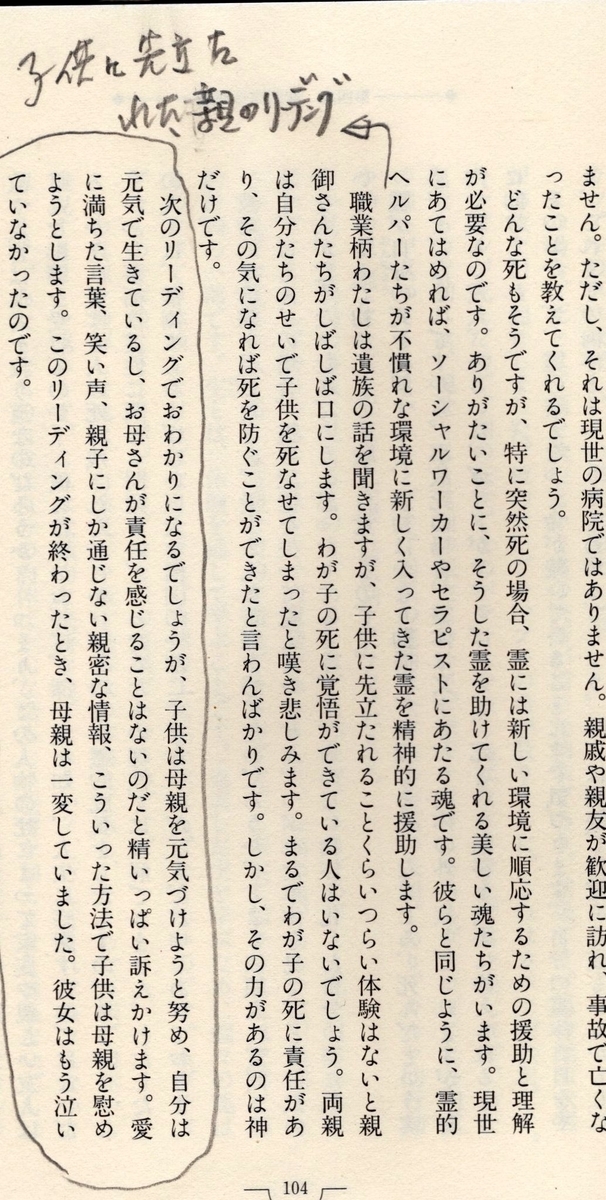 子供に先立た
れた、親のリーデング
ません。ただし、それは現世の病院ではありません。親戚や親友が歓迎に訪れ、事故で亡くな
ったことを教えてくれるでしょう。
どんな死もそうですが、特に突然死の場合、霊には新しい環境に順応するための援助と理解
が必要なのです。ありがたいことに、そうした霊を助けてくれる美しい魂たちがいます。現世
にあてはめれば、ソーシャルワーカーやセラピストにあたる魂です。彼らと同じように、霊的
ヘルパーたちが不慣れな環境に新しく入ってきた霊を精神的に援助します。
職業柄わたしは遺族の話を聞きますが、子供に先立たれることくらいつらい体験はないと親
御さんたちがしばしば口にします。わが子の死に覚悟ができている人はいないでしょう。両親
は自分たちのせいで子供を死なせてしまったと嘆き悲しみます。まるでわが子の死に責任があ
り、その気になれば死を防ぐことができたと言わんばかりです。しかし、その力があるのは神
だけです。
次のリーディングでおわかりになるでしょうが、子供は母親を元気づけようと努め、自分は
元気で生きているし、お母さんが責任を感じることはないのだと精いっぱい訴えかけます。愛
に満ちた言葉、笑い声、親子にしか通じない親密な情報、こういった方法で子供は母親を慰め
ようとします。このリーディングが終わったとき、母親は一変していました。彼女はもう泣い
ていなかったのです。
104